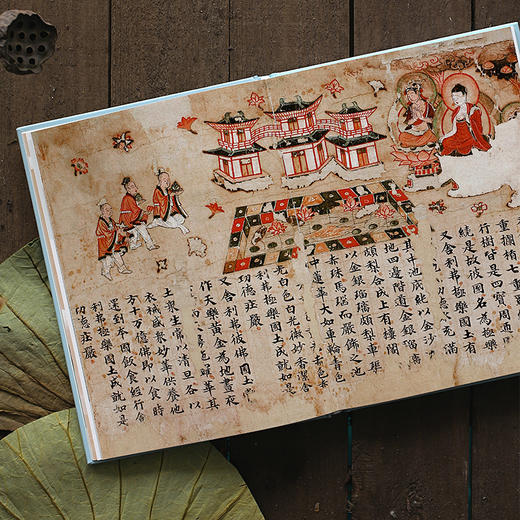 重欄楯七重
行樹皆是四寶周匝
繞是故彼國名為極樂
又舍利弗極樂國土有
充滿
其中池底純以金沙
地四邊階道金銀瑠璃
頗梨合成上有樓閣
以金銀瑠璃頗梨車
赤珠馬瑙而嚴飾之池
中蓮華大如車輪青色
赤色赤
光白色白光微妙香潔舍
利弗極樂國土成就如是
功德莊嚴
又舍利弗彼佛國土
作天樂黃金為地晝夜
華其
土眾生常以清旦各以
衣裓盛眾妙華供養他
方十万億佛即以食時
還到本國飯食經行舍
利弗極樂國土成就如是
功德莊嚴